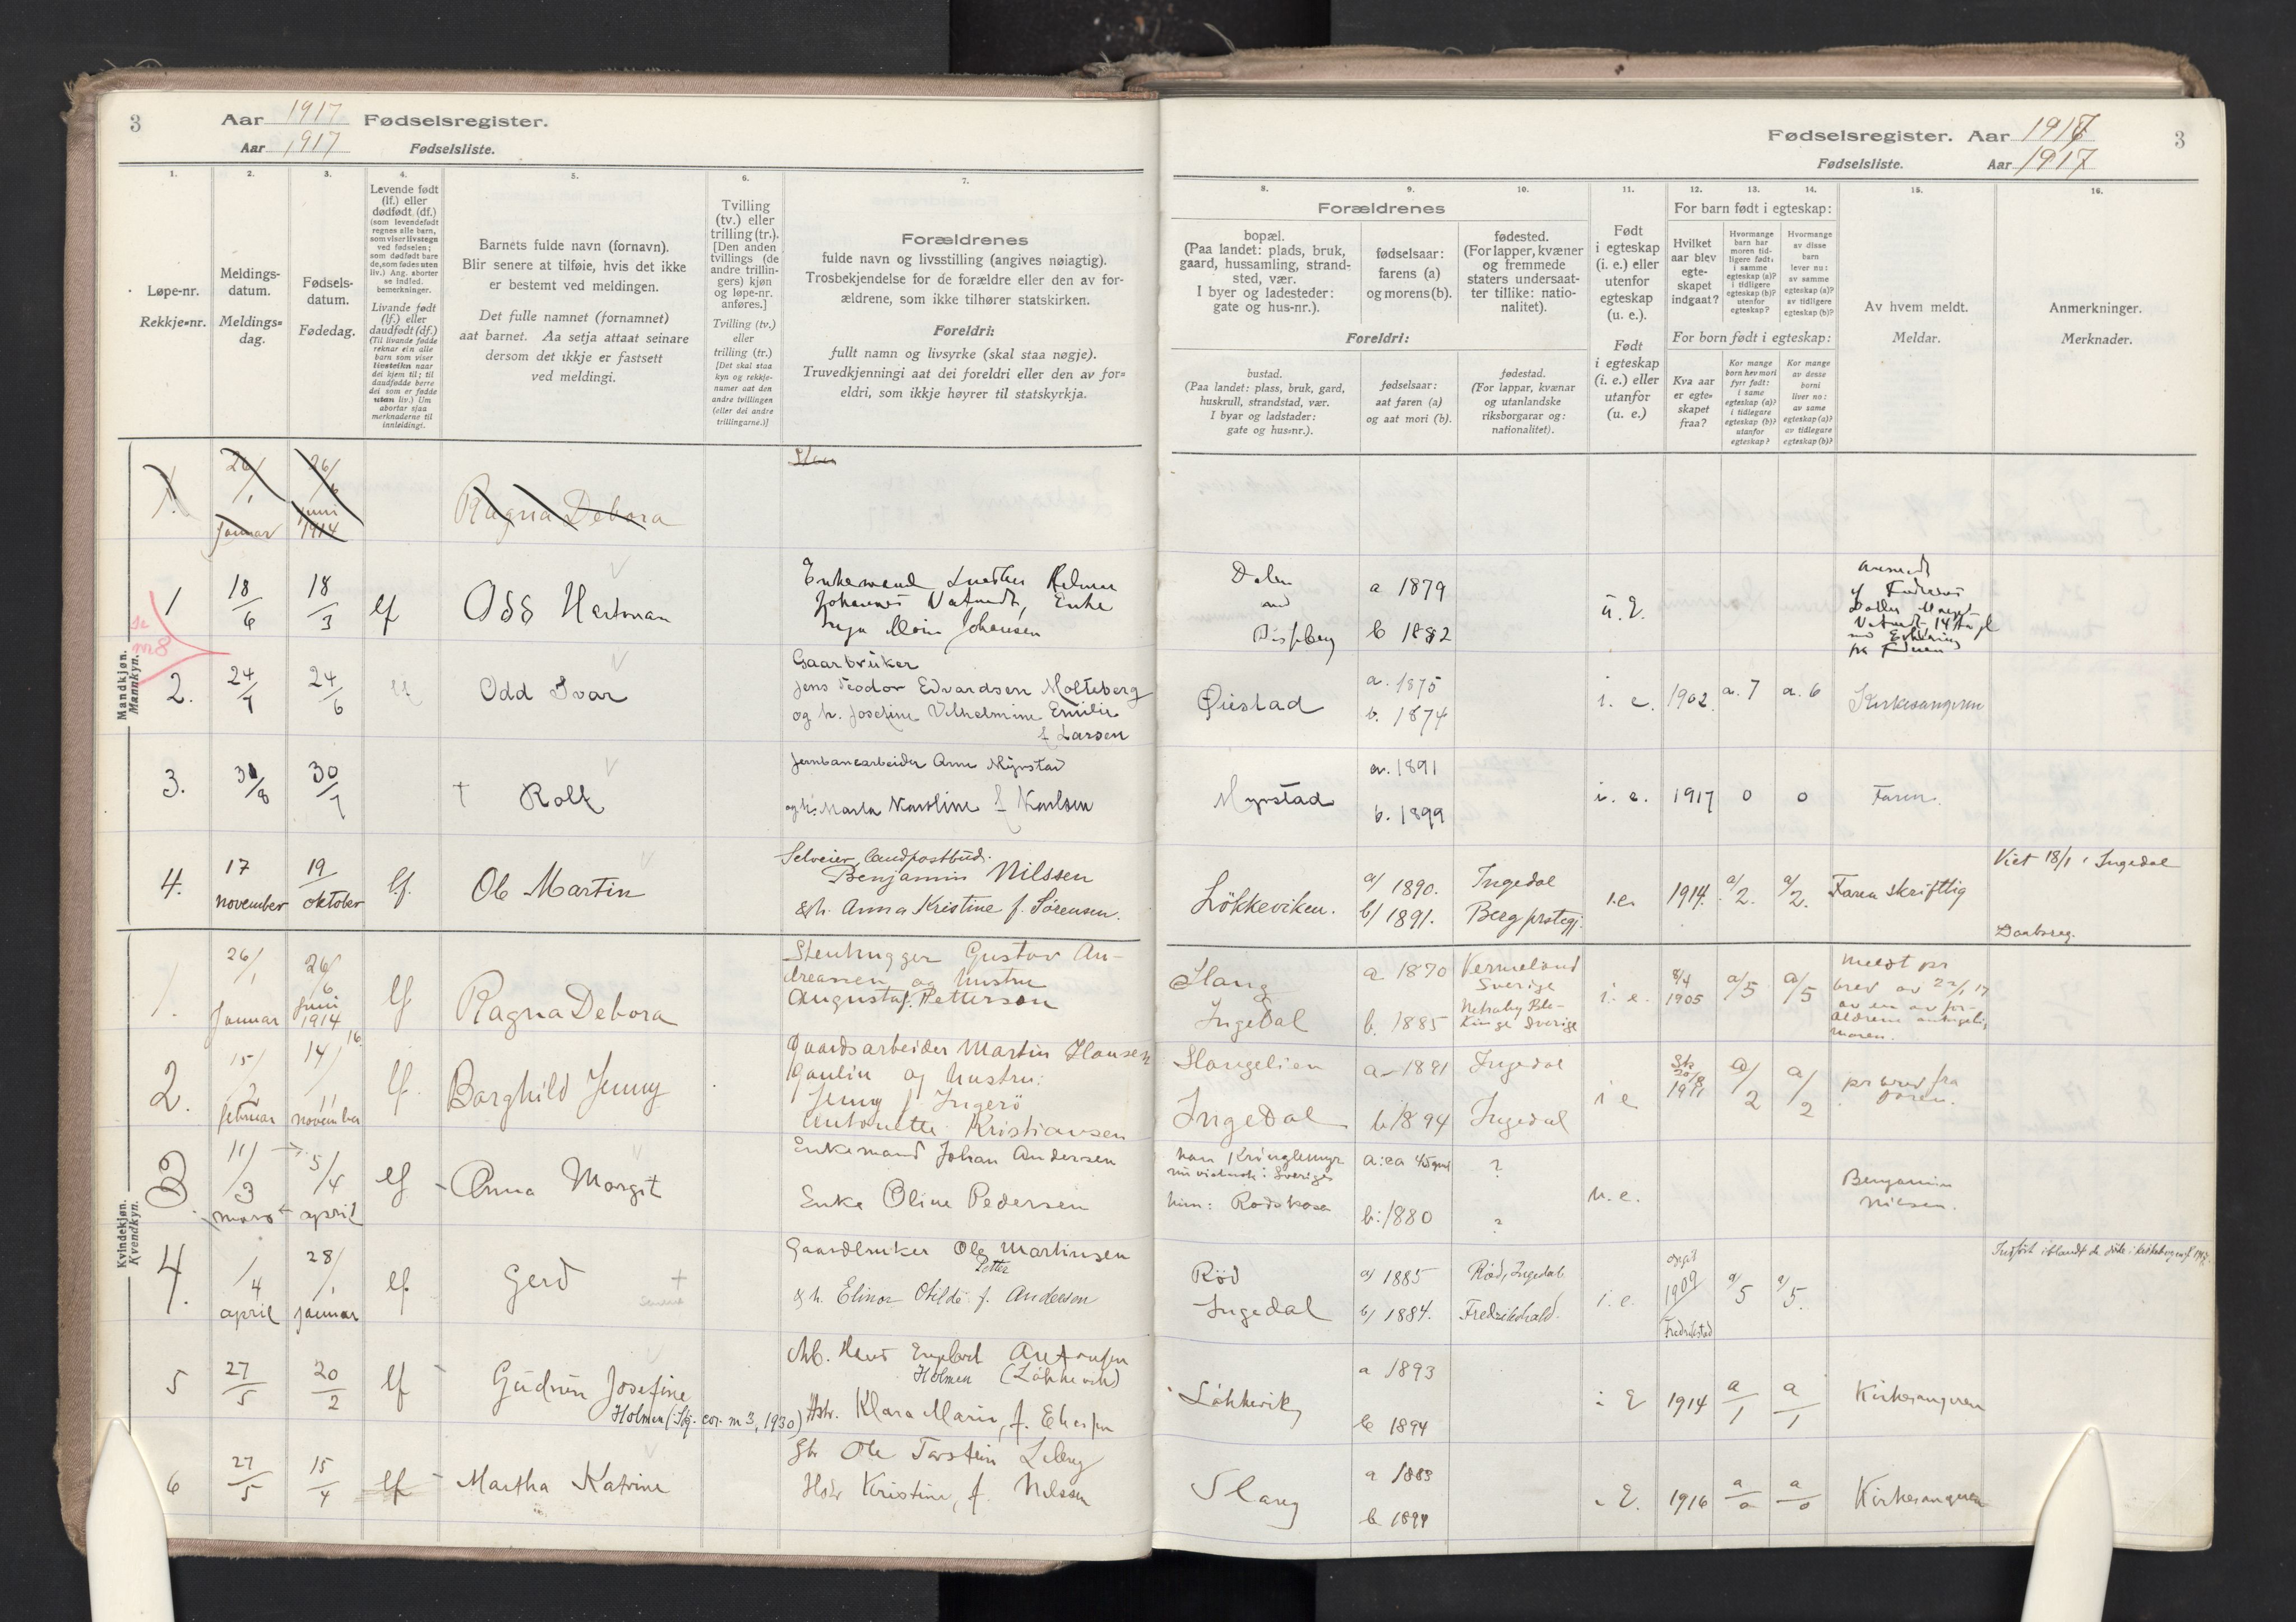 3
Aar 1917 Fødselsregister.
Aar 1917 Fødselsliste.
1.
2.
3.
4.
5.
6.
7.
Løpe-nr.
Rekkje-nr.
Meldings-
datum.
Meldings-
dag.
Fødsels-
datum.
Fødedag.
Levende født
(lf.) eller
dødfødt (df.)
(som levendefødt
regnes alle barn,
som viser livstegn
ved fødselen;
som dødfødt bare
de, som fødes uten
liv.) Ang. aborter
se indled.
bemerkninger.
Livande født
(lf.) eller
daudfødt (df.)
(Til livande fødde
reknar ein alle
barn som viser
livsteikn naar
dei kjem til; til
daudfødde berre
dei som er fødde
utan liv.) Um
abortar sjaa
merknaderne til
innleidingi.
Barnets fulde navn (fornavn).
Blir senere at tilføie, hvis det ikke
er bestemt ved meldingen.
Det fulle namnet (fornamnet)
aat barnet. Aa setja attaat seinare
dersom det ikkje er fastsett
ved meldingi.
Tvilling
(tv.) eller
trilling (tr.).
[Den anden
tvillings (de
andre trillin-
gers) kjøn
og løpe-nr.
anføres.]
Tvilling (tv.)
eller
trilling (tr.)
[Det skal staa
kyn og rekkje-
numer aat den
andre tvillingen
(eller dei andre
trillingarne.)]
Forældrenes
fulde navn og livsstilling (angives nøiagtig).
Trosbekjendelse for de forældre eller den av for-
ældrene, som ikke tilhører statskirken.
Foreldri:
fullt namn og livsyrke (skal staa nøgje).
Truvedkjenningi aat dei foreldri eller den av for-
eldri, som ikkje høyrer til statskyrkja.
Mandkjøn.
Mannkyn.
1.
26/1
Januar
26/6
juni
1914
Ragna Debora
se
m8
1
18/6
18/3
lf
Odd Hartman
Enkemand
Johannes
Enke
Johansen
2.
24/7
24/6
lf
Odd Ivar
Gaarbruker
Jens Teodor Edvardsen Molteberg
og h. Josefine Vilhelmine Emilie
f Larsen
3.
31/8
30/7
† Rolf
Jernbanearbeider Arne Myrstad
og h. Marta Karoline f Karlsen
4.
17
november
19
oktober
lf.
Ole Martin
Selveier, landpostbud.
Benjamin Nilssen
& h. Anna Kristine f. Sørensen.
Kvindekjøn.
Kvendkyn.
1.
26/1
Januar
26/6
Juni
1914
lf
Ragna Debora
Stenhugger Gustav An-
dreassen og hustru
Augusta f. Petterson
2.
15/2
februar
14/11
16.
november
lf.
Borghild Jenny
Gaardsarbeider Martin Hansen
og hustru:
Jenny f Ingerö
Antonette Kristiansen
3
11/3
mars
5/4
april
lf
Anna Margit
Enkemand Johan Andersen
Enke Oline Pedersen
4.
1/4
april
28/1
januar
lf.
Gerd +
Gaardbruker Ole Martinsen
Petter
& h. Elinor Otilde f. Andersen
5
27/5
20/2
lf
Gudrun Josefine
Holmen (Skj. cor. m 3, 1930)
Arb. Hans Engebret Antonsen
Holmen (Løkkevik)
Hstr. Klara Marie, f.
6
27/5
15/4
lf
Martha Katrine
Ole Torstein
Hstr Kristine, f. Nilssen
Fødselsregister. Aar 1917 3
Fødselsliste. Aar 1917
8.
9.
10.
11.
12.
13.
14.
15.
16.
Forældrenes
bopæl.
(Paa landet: plads, bruk,
gaard, hussamling, strand-
sted, vær.
I byer og ladesteder:
gate og hus-nr.).
fødselsaar:
farens (a)
og morens (b).
fødested.
(For lapper, kvæner
og fremmede
staters undersaat-
ter tillike: natio-
nalitet).
Foreldri:
bustad.
(Paa landet: plass, bruk, gard,
huskrull, strandstad, vær.
I byar og ladstader:
gate og hus-nr.).
fødselsaar:
aat faren (a)
og aat mori (b).
fødestad.
(For lappar, kvænar
og utanlandske
riksborgarar og:
nationalitet).
Født
i egteskap
(i. e.) eller
utenfor
egteskap
(u. e.).
Født
i egteskap
(i. e.) eller
utanfor
(u. e.)
For barn født i egteskap:
Hvilket
aar blev
egte-
skapet
indgaat?
Hvormange
barn har
moren tid-
ligere født:
i samme
egteskap (a)?
i tidligere
egteskap (b)?
utenfor
egteskap?
Hvormange
av disse
barn
lever nu:
av samme
egteskap (a)?
av tidligere
egteskap (b)?
For born født i egteskap:
Kva aar
er egte-
skapet
fraa?
Kor mange
born hev mori
fyrr født:
i same
egteskap (a)?
i tidlegare
egteskap (b)?
utanfor
egteskap?
Kor mange
av desse
borni
liver no:
av same
egteskap (a)?
av tidlegare
egteskap (b)?
Av hvem meldt.
Meldar.
Anmerkninger.
Merknader.
Dalen
a 1879
b 1882
u. E.
fra Faderen
Øiestad
a. 1875
b. 1874
i. e.
1902.
a. 7
a. 6
Kirkesangeren
Myrstad
a. 1891
b. 1899
i. e.
1917
0
0
Faren.
Løkkeviken.
a/ 1890.
b/ 1891.
Ingedal
Berg prstegj.
i.e.
1914.
a/2.
a/2.
Faren skriftlig
Viet 18/1 i Ingedal
Daabsreg.
Slang
Ingedal
a 1870
b. 1885
Vermeland
Sverige
Netraby Ble-
kinge Sverige
i. e.
8/4
1905
a/5
a/5
meldt pr
brev av 22/1 17
av en av for-
ældrene antageli
moren.
Slangelien
Ingedal
a 1891
b 1894
Ingedal
Ingedal
i e
1911
a/2
a/2
pr brev fra
faren.
han Kringlemyr
i Sverige
hun: Rödskasa
a: ca 45
b: 1880
?
?
u. e.
Benjamin
Nilsen.
Röd
Ingedal
a/ 1885
b/ 1884.
Röd, Ingedal
Fredrikshald.
i. e.
1909
Fredrikstad
a/5
a/5.
Indført iblandt de døde i kirkebogen f. 1917.
Løkkevik
a 1893
b 1894
i E
1914
a/1
a/1
Kirkesangeren
Slang
a 1883
b 1894
i E.
1916
a/0
a/0
Kirkesangeren